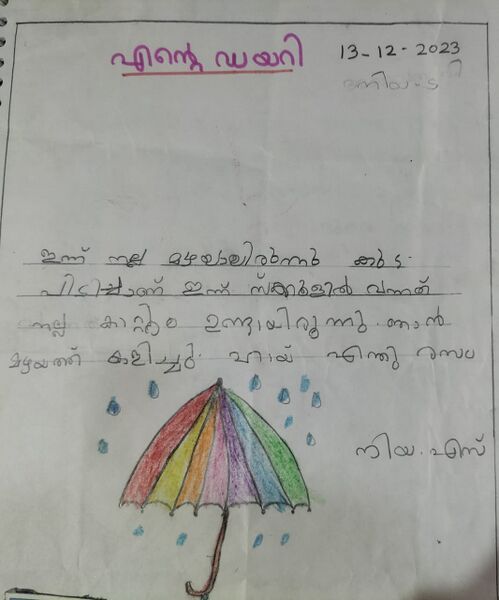 എന്റെ ഡയറി
13-12-2023
ഇന്ന് നല്ല മഴയാലിരുന്നു കുട
പിടിച്ചാണ് ഇന്ന് സ്ക്കൂളിൽ വന്നത്
നല്ല കാറ്റും ഉണ്ടായിരുന്നു. ഞാൻ
മഴയത്ത് കളിച്ചു. ഹായ് എന്തു രസം
നിയ. എസ്